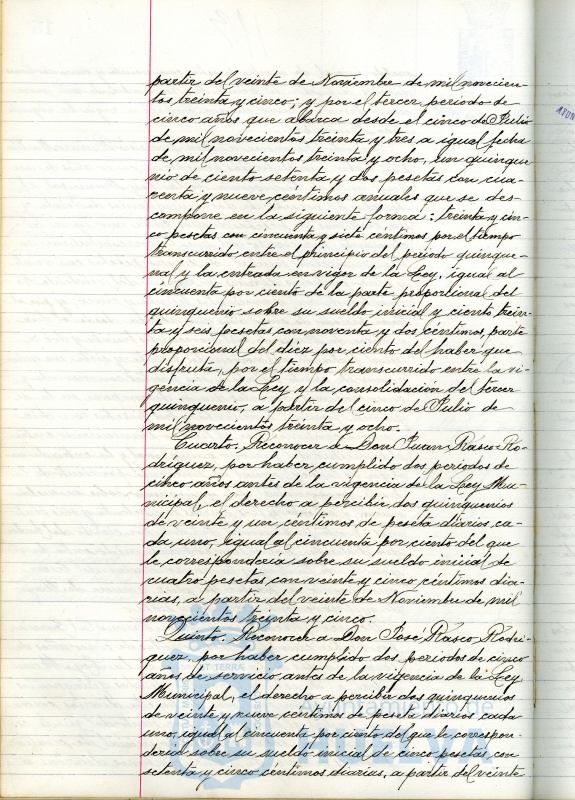 partir del veinte de Noviembre de mil novecien-
tos treinta y cinco; y por el tercer periodo de
cinco años que abarca desde el cinco de Julio
de mil novecientos treinta y tres a igual fecha
de mil novecientos treinta y ocho, un quinque-
nio de ciento setenta y dos pesetas con cua-
renta y nueve céntimos anuales que se des-
compone en la siguiente forma: treinta y cin-
co pesetas con cincuenta y siete céntimos por el tiempo
transcurrido entre el principio del periodo quinque-
nal y la entrada en vigor de la Ley, igual al
cincuenta por ciento de la parte proporcional del
quinquenio sobre su sueldo inicial y ciento trein-
ta y seis pesetas con noventa y dos céntimos, parte
proporcional del diez por ciento del haber que
disfruta, por el tiempo transcurrido entre la vi-
gencia de la Ley y la consolidación del tercer
quinquenio, a partir del cinco de Julio de
mil novecientos treinta y ocho.
Cuarto. Reconocer a Don Juan Rasco Ro-
dríguez, por haber cumplido dos periodos de
cinco años antes de la vigencia de la Ley Mu-
nicipal, el derecho a percibir dos quinquenios
de veinte y un céntimos de peseta diarios, ca-
da uno, igual al cincuenta por ciento del que
le correspondería sobre su sueldo inicial de
cuatro pesetas con veinte y cinco céntimos dia-
rias, a partir del veinte de Noviembre de mil
novecientos treinta y cinco.
Quinto. Reconocer a Don José Rasco Rodrí-
guez, por haber cumplido dos periodos de cinco
años de servicio antes de la vigencia de la Ley
Municipal, el derecho a percibir dos quinquenios
de veinte y nueve céntimos de peseta diarios cada
uno, igual al cincuenta por ciento del que le correspon-
dería sobre su sueldo inicial de cinco pesetas, con
setenta y cinco céntimos diarias, a partir del veinte
Ayuntamiento de